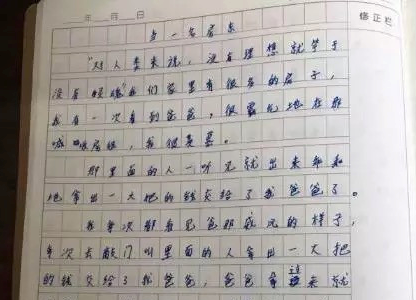 年 月 日
修正栏
当一名房东
“对人类来说，没有理想就等于
没有顿魂”我们家里有很多的房子，
我有一次看到爸爸，很霸气地在那
喊：喂房租，我很羡慕。
那里面的人一听见就出来乖乖
地拿出一大把的钱交给了我爸爸了。
我每次都看见爸那威风的样子，
每次去敲门叫里面的人拿出一大把
的钱交给了我爸爸，爸爸拿过来就